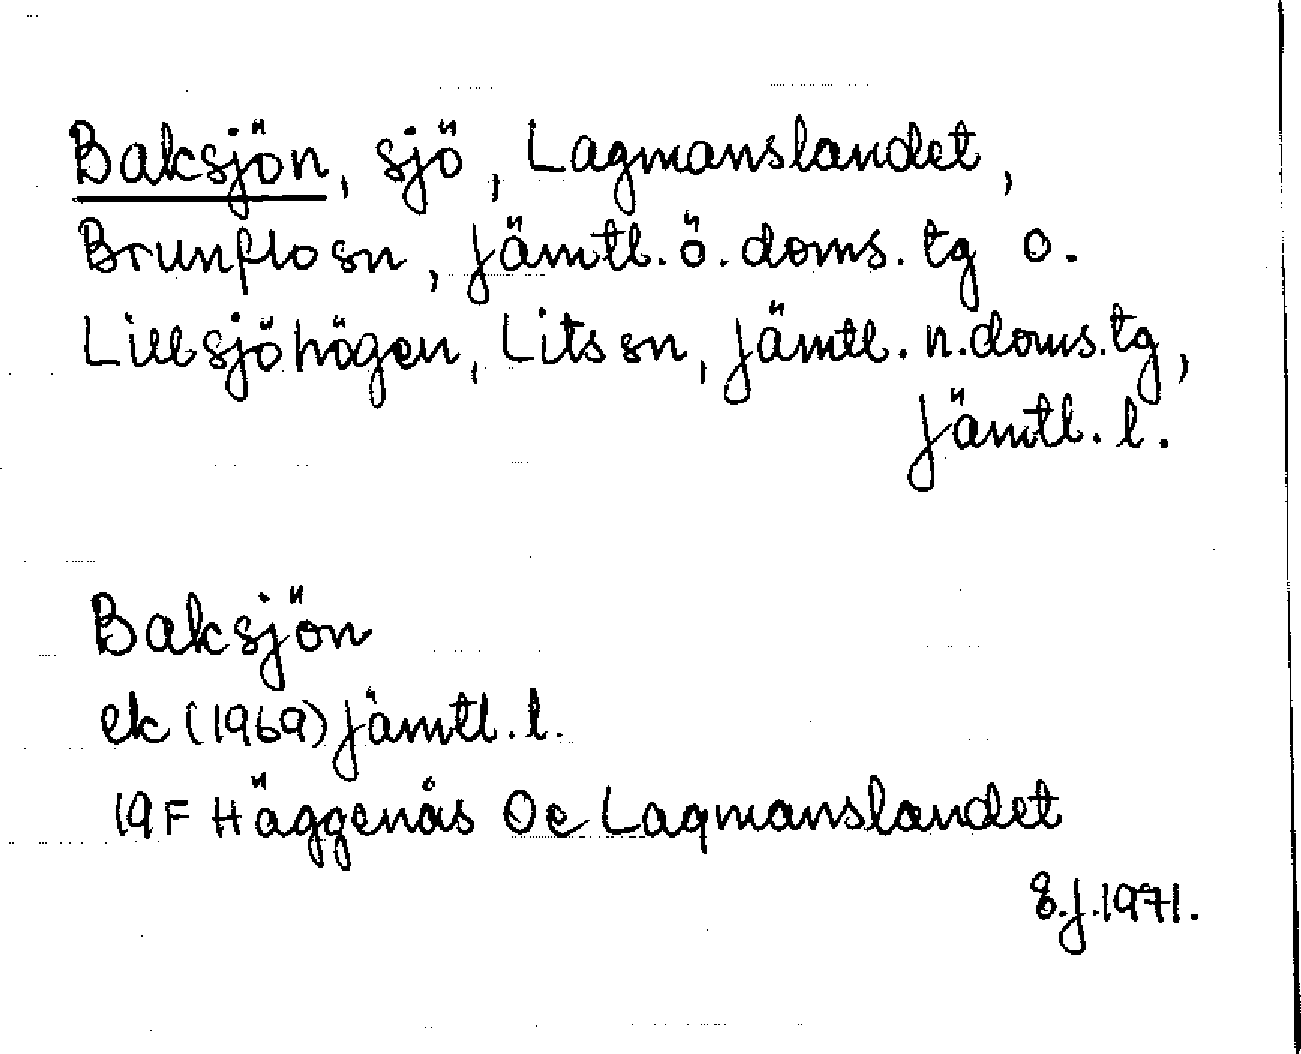 Baksjön, sjö, Lagmanslandet,
Brunflo sn, Jämtl. ö. doms. tg o.
Lillsjöhögen, Lits sn, Jämtl. n. doms. tg,
Jämtl. l.
Baksjön
ek (1969) Jämtl. l.
19F Häggenås Oc Lagmanslandet
g.J. 1971.